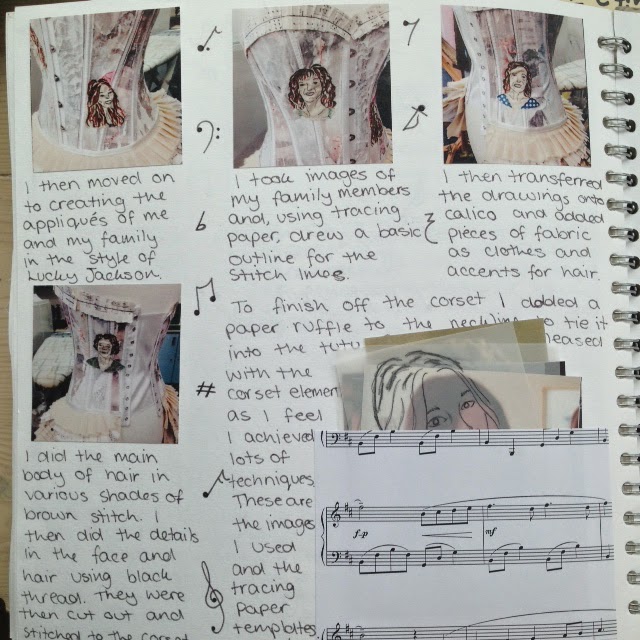 I then moved on
to creating the
appliqués of me
and my family
in the style of
Lucky Jackson.
I took images of
my family members
and, using tracing
paper, drew a basic
outline for the
stitch lines.
I then transferred
the drawings onto
calico and added
pieces of fabric
as clothes and
accents for hair.
I did the main
body of hair in
various shades of
brown stitch. I
then did the details
in the face and
hair using black
thread. They were
then cut out and
stitched to the corset
To finish off the corset I added a
paper ruffle to the neckline to tie it
into the tutu
with the
corset element
as I feel
I achieved
lots of
techniques.
These are
the images
I used
and the
tracing
paper
templates
f-p
mf